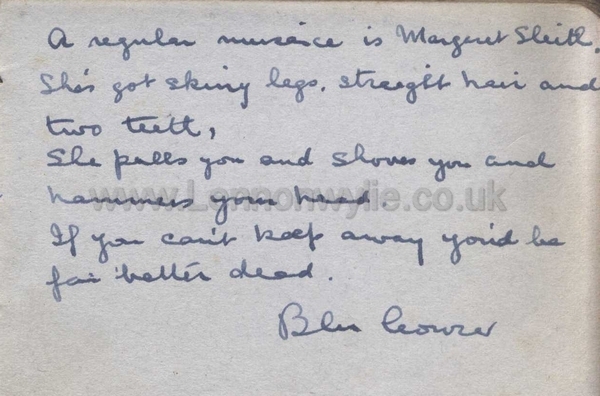 A regular nuisance is Margaret Sleith.
She's got skiny legs, straight hair and
two teeth,
She pulls you and shoves you and
hammers your head.
www.Lennonwylie.co.uk
If you can't keep away you'd be
far better dead.